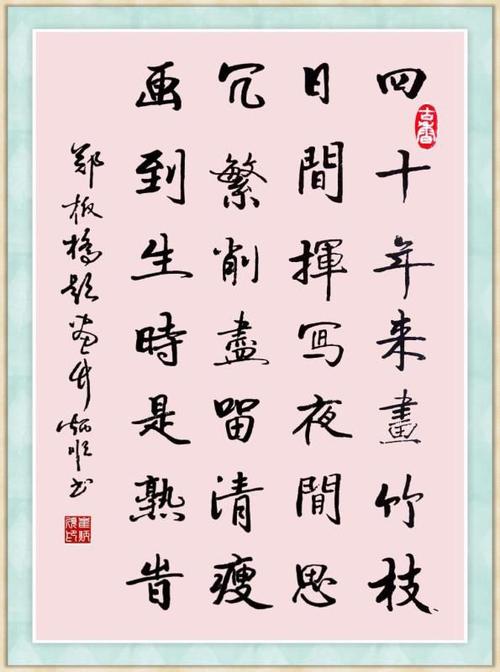 四十年来畫竹枝
古香
日間揮写夜間思
冗繁削盡留清瘦
画到生時是熟旹
鄭板橋題畫竹炳順书